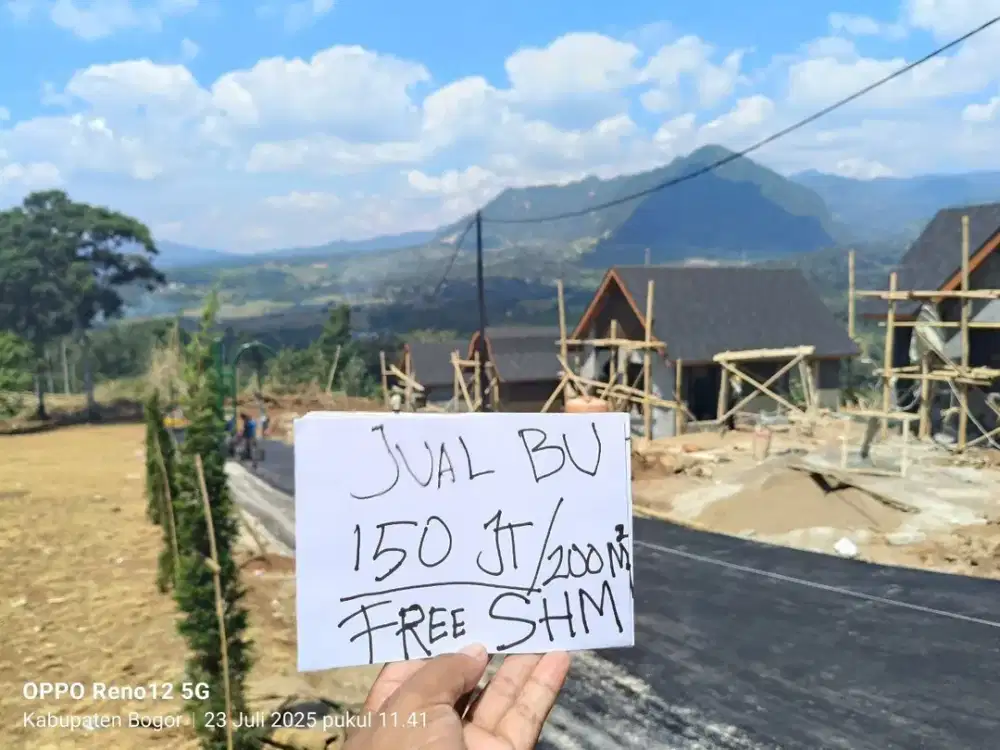 JUAL BU
150 JT/200M²
FREE SHM
OPPO Reno12 5G
Kabupaten Bogor | 23 Juli 2025 pukul 11.41